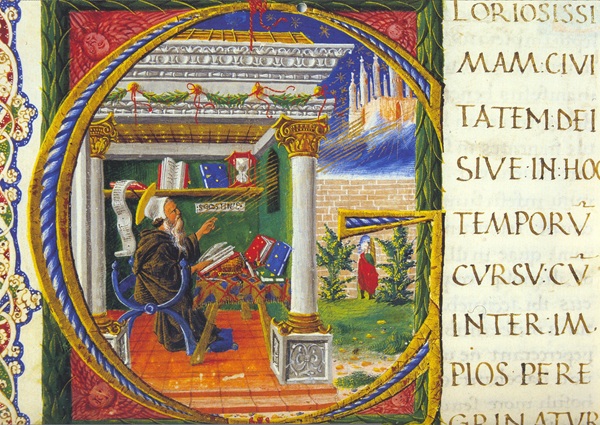 GLORIOSISSI
MAM:CIVI
TATEM:DEI
SIVE:IN:HOC
TEMPORV̄
CVRSV:CV̄
INTER:IM
PIOS:PERE
GRINATVR